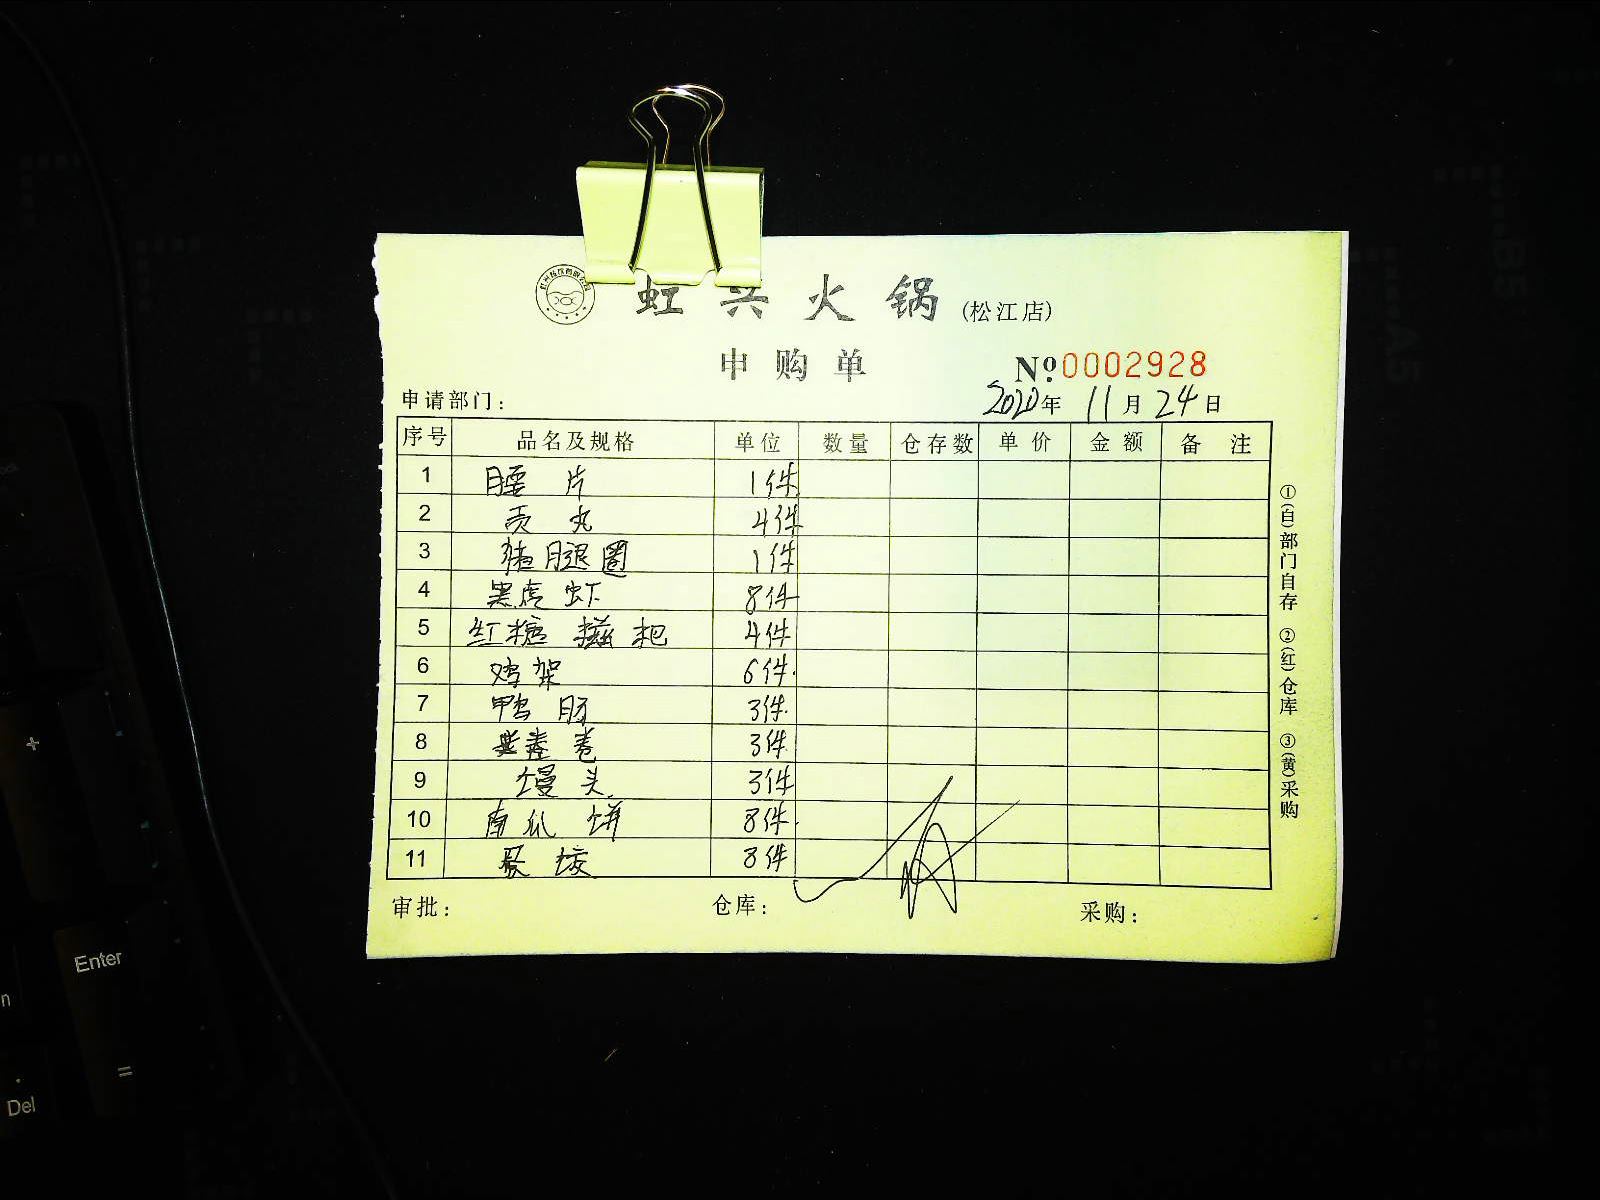 虹兴火锅(松江店)
申购单
№0002928
申请部门:
2020年 11月 24日
序号 品名及规格 单位 数量 仓存数 单价 金额 备注
1 腰片 1件
2 贡丸 4件
3 猪腿圈 1件
4 黑虎虾 8件
5 红糖糍粑 4件
6 鸡架 6件.
7 鸭肠 3件.
8 卷 3件.
9 馒头 3件
10 南瓜饼 8件.
11 8件
审批: 仓库: 采购:
①(白)部门自存 ②(红)仓库 ③(黄)采购
+
Enter
n
=
Del